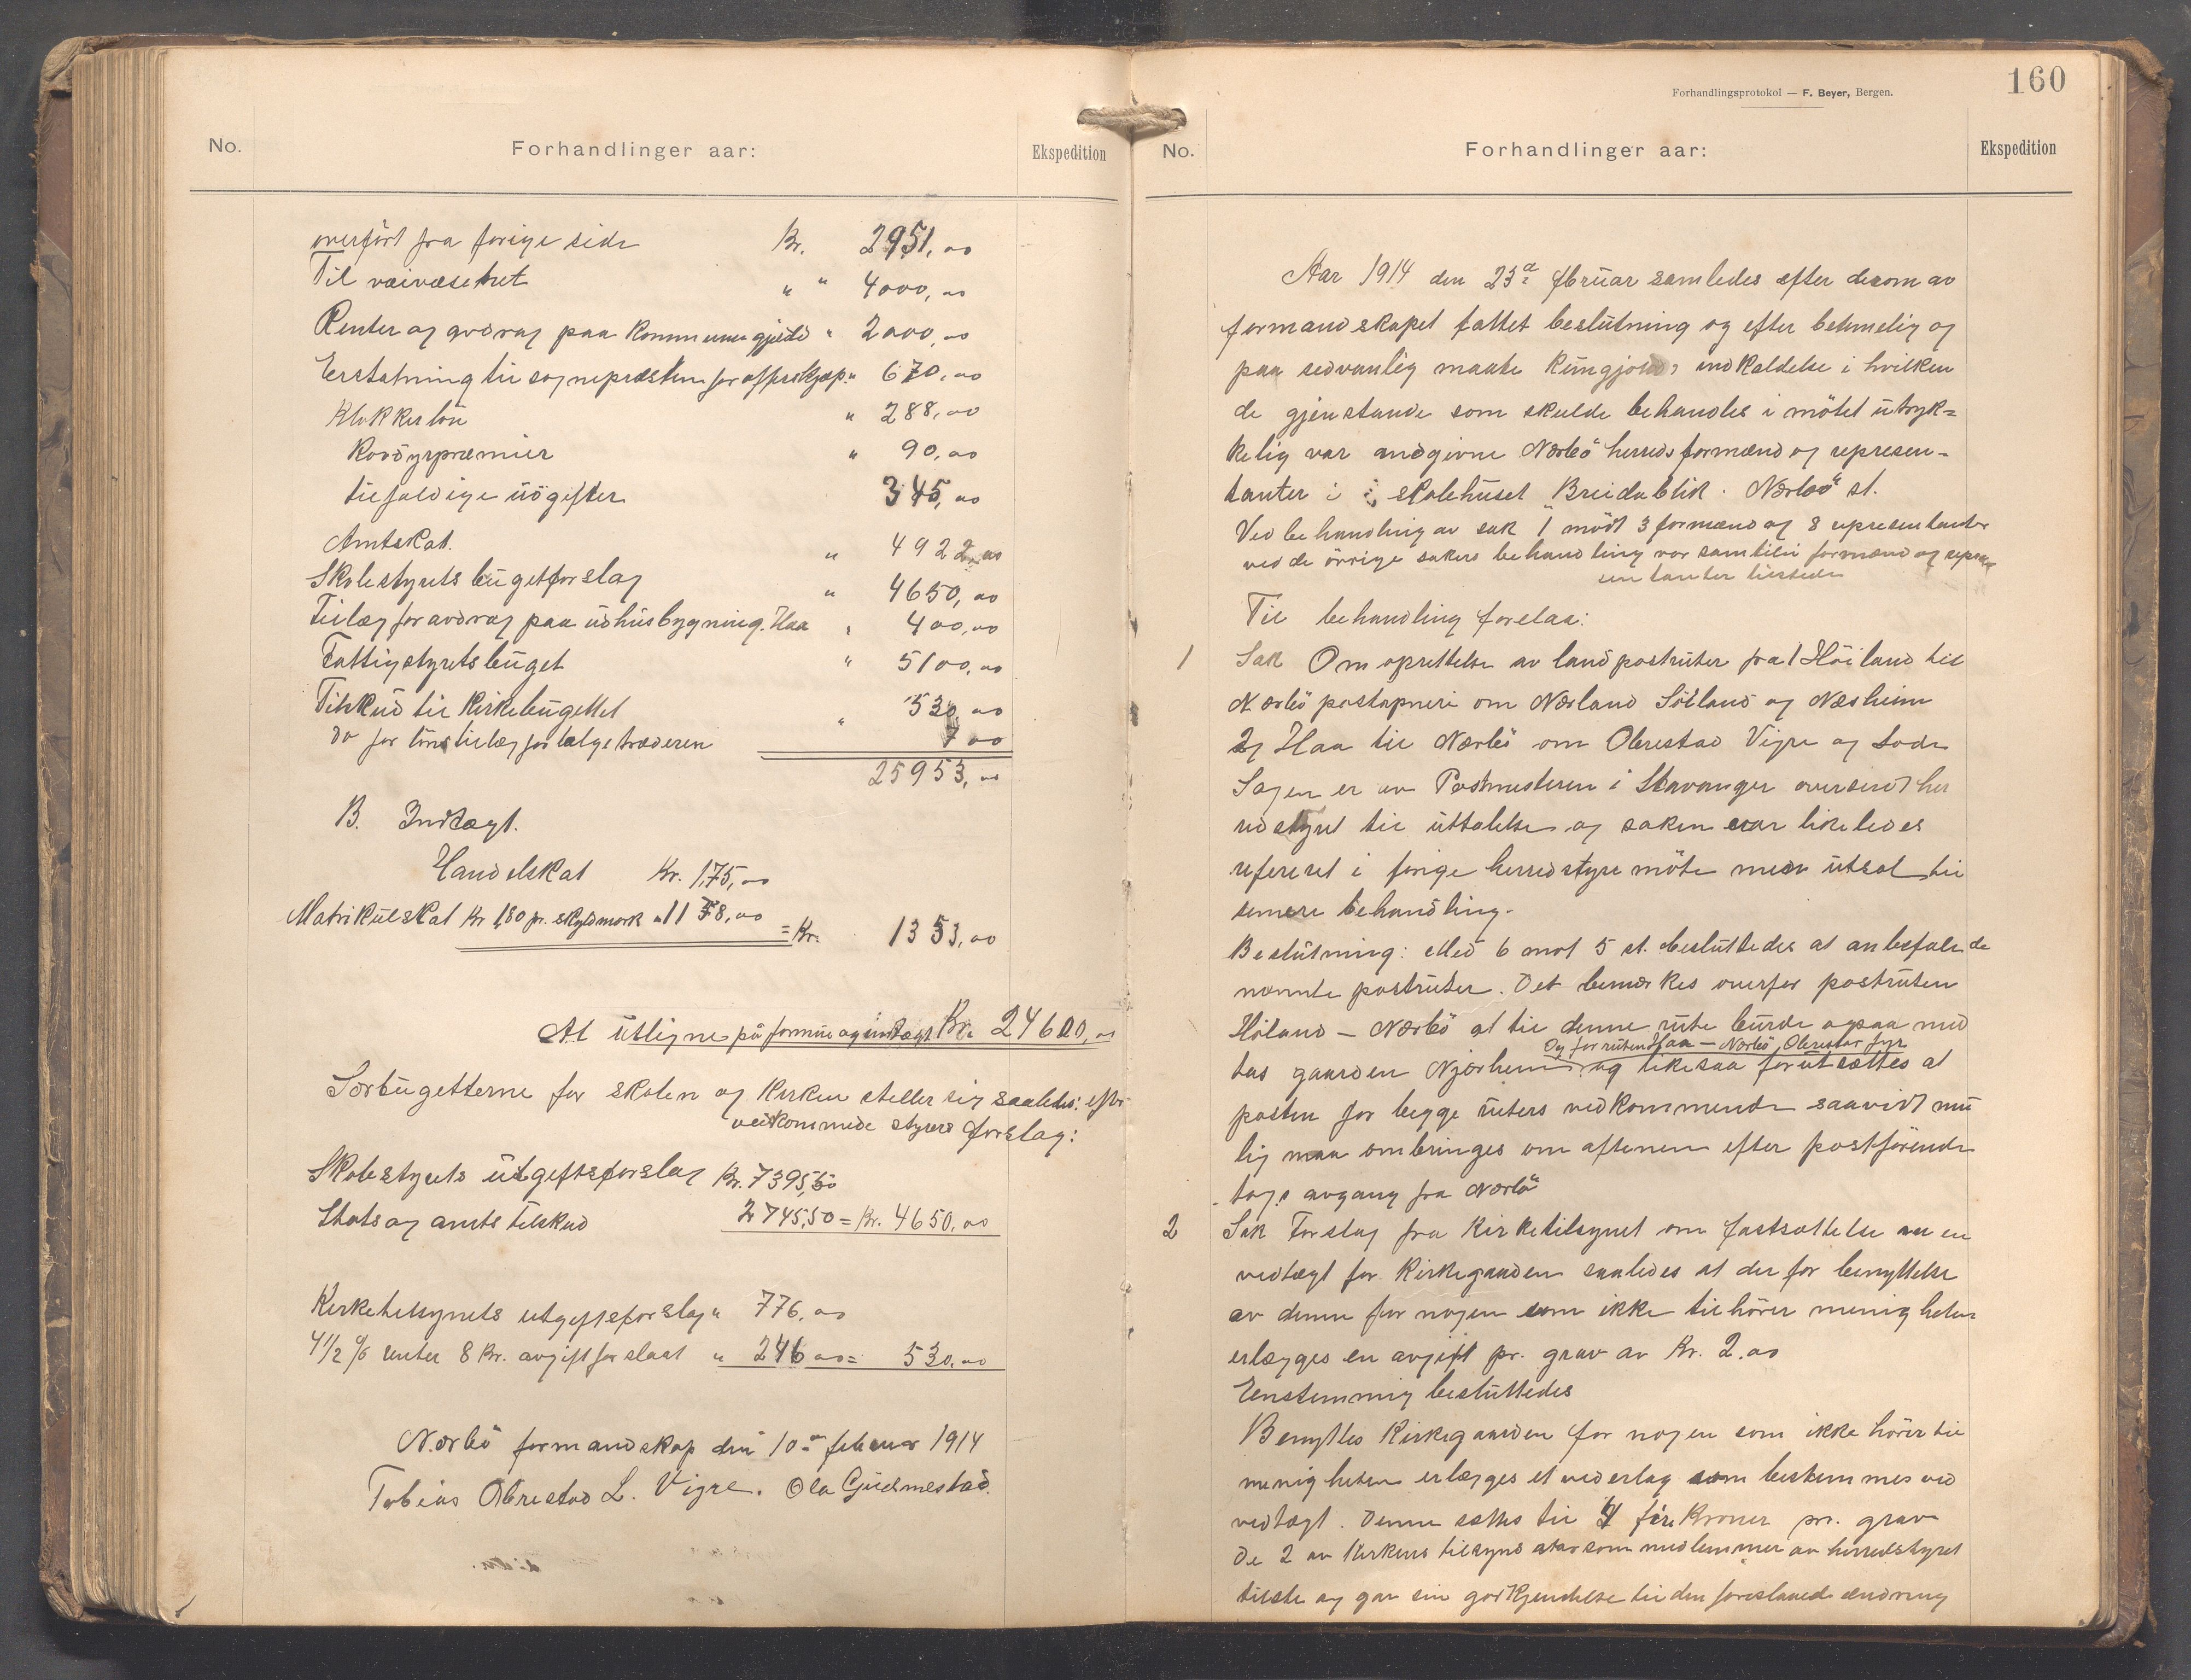 No.
Forhandlinger aar:
Ekspedition
overført fra forige side Kr. 2951,00
Til væivæsenet " " 4000,00
Renter og avdrag paa Kommunegjeld " 2000,00
Erstatning til sognepræsten for offerskjøp. " 670,00
Klokkerløn " 288,00
Rovdyrpræmier " 90,00
tilfældige udgifter 345,00
Amtskat. " 4922,00
Skolestyrets bugetforslag " 4650,00
Tillæg for avdrag paa udhusbygning. Haa " 400,00
Fattigstyrets buget " 5100,00
Tilskud til Kirkebugettet " 530,00
do for lønstillæg for 7 00
25953,00
B. Indtægt.
Handelskat Kr. 175,00
Matrikulskat Kr 1,80 pr. skyldmark " 1178,00 = Kr. 1353,00
At utligne på formue og indtægt Kr. 24600,00
Særbugetterne for skolen og Kirken steller sig saaledes: efter
vedkommede styrers forslag:
Skolestyrets utgiftsforslag Kr. 7395,50
Stats og amts tilskud 2745,50 = Kr. 4650,00
Kirketilsynets utgiftsforslag " 776,00
4 1/2 % renter 8 Kr. avgift for slaat " 246,00 = 530,00
Nærbø formandskap den 10de februar 1914
Tobias Obrestad L. Vigre. Ola Gudmestad.
Forhandlingsprotokol — F. Beyer, Bergen.
160
No.
Forhandlinger aar:
Ekspedition
Aar 1914 den 23de fbruar samledes efter derom av
formandskapet fattet beslutning og efter betimelig og
paa sedvanlig maate kungjord indkaldelse i hvilken
de gjenstande som skulde behandles i møtet utryk=
kelig var andgivne Nærbø herreds formænd og represen-
tanter i skolehuset Breidablik. Nærbø st.
Ved behandling av sak 1 mødt 3 formænd og 8 representanter
ved de øvrige sakers behandling var samtlige formænd og repre
sentanter tilstede
Til behandling forelaa:
1 Sak Om oprettelse av landpostruter fra 1 Høiland til
Nærbø postapneri om Nærland Søiland og Næsheim
2 Haa til Nærbø om Obrestad Vigre og Lode
Sagen er av Postmesteren i Stavanger oversendt her
redstyret til uttalelse og saken var likeledes
referert i forige herredstyremøte men utsat til
senere behandling.
Beslutning: Med 6 mot 5 st. besluttedes at anbefale de
nævnte postruter. Det bemærkes overfor postruten
Høiland – Nærbø at til denne rute burde ogsaa med
Og for ruten Haa – Nærbø, Obrestad fyr
tas gaarden Njærheim og likesaa forutsættes at
posten for begge ruters vedkommende saavidt mu
lig maa ombringes om aftenen efter postførende
togs avgang fra Nærbø
2 Sak Forslag fra Kirketilsynet om fastsættelse av en
vedtægt for Kirkegaarden saaledes at der for benyttelse
av denne for nogen som ikke tilhører menigheten
erlægges en avgift pr. grav av Kr. 2.00
Enstemmig besluttedes
Benyttes Kirkegaarden for nogen som ikke hører til
menigheten erlægges et vederlag som bestemmes ved
vedtægt. Denne sættes til 4 fire Kroner pr. grav
De 2 av Kirkens tilsyns som medlemmer av herredstyret
tilstede og gav sin godkjendelse til den foreslaaede ændring